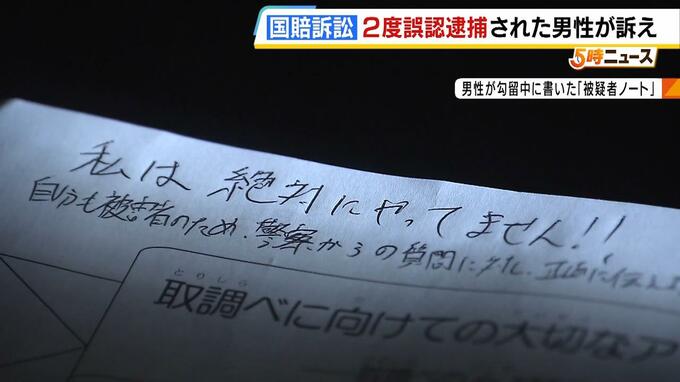 国賠訴訟 2度誤認逮捕された男性が訴え
5時ニュース
男性が勾留中に書いた「被疑者ノート」
私は絶対にやってません!!
自分も被害者のため、警察からの質問に
とりしら
取調べに向けての大切なア